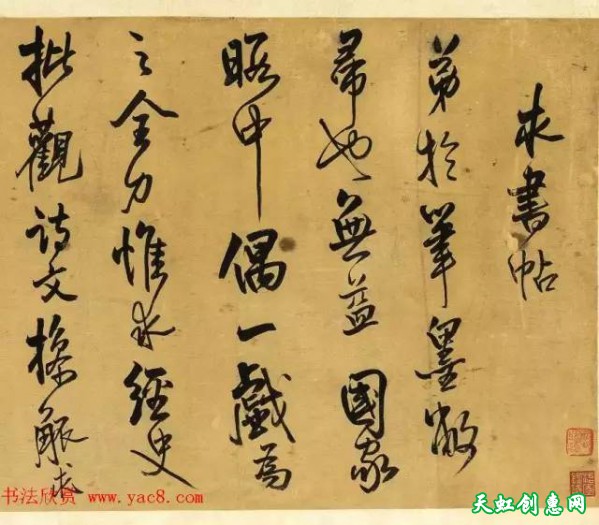 求書帖
弟於筆墨敝
帚也無益國家
暇中偶一戲為
之全力惟求經史
批觀詩文操觚
书法欣赏 www.yac8.com
天虹创惠网